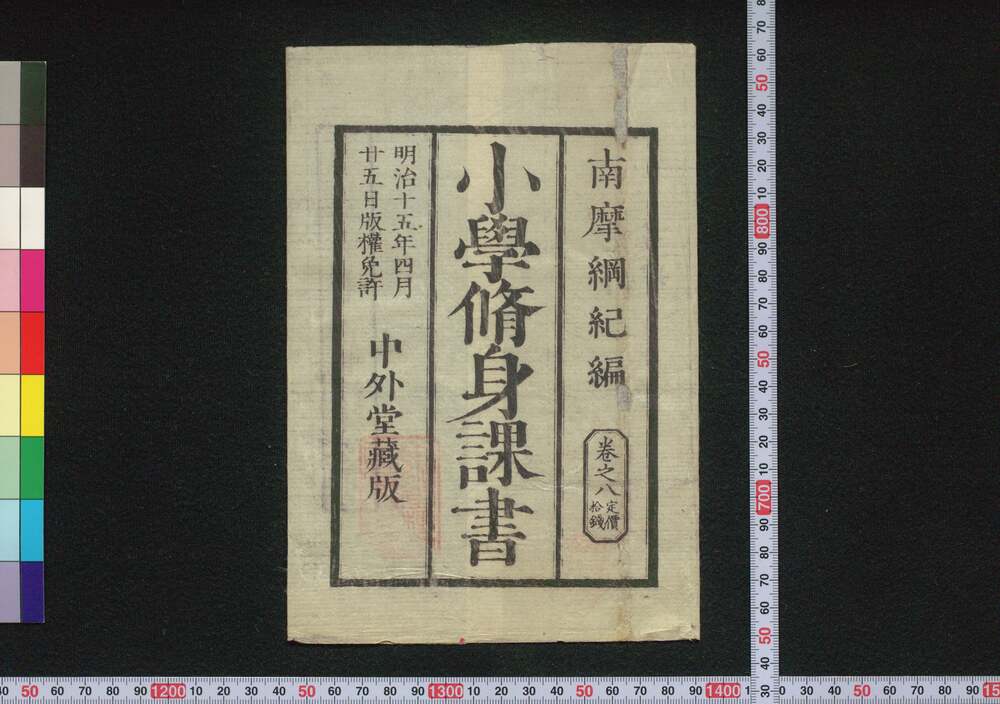 南摩綱紀編
卷之八
定價
拾錢
小學脩身課書
明治十五年四月
廿五日版權免許
中外堂藏版
80 70 60 50 40 30 20 10 800 90 80 70 60 50 40 30 20 10 700 90 80 70 60 50 40 30
40 50 60 70 80 90 1200 10 20 30 40 50 60 70 80 90 1300 10 20 30 40 50 60 70 80 90 1400 10 20 30 40 50 60 70 80 90